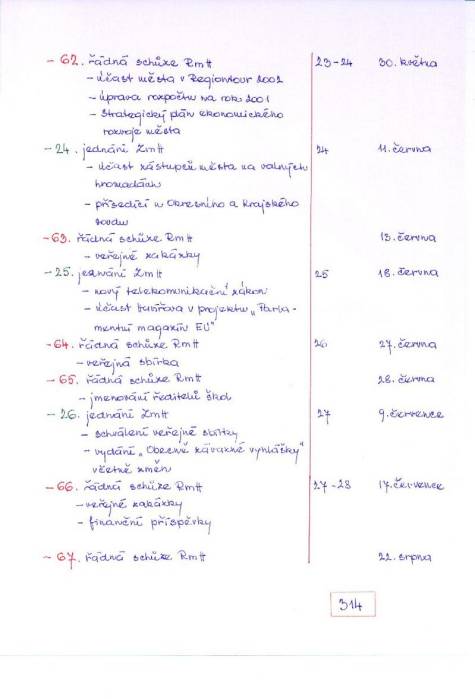 - 62. řádná schůze RmH 23-24 30. května
- účast města v Regiontour 2002
- úprava rozpočtu na rok 2001
- Strategický plán ekonomického
rozvoje města
- 24. jednání ZmH 24 11. června
- účast zástupců města na valných
hromadách
- přísedící u Okresního a Krajského
soudu
- 63. řádná schůze RmH 13. června
- veřejné zakázky
- 25. jednání ZmH 25 18. června
- nový telekomunikační zákon
- účast Havířova v projektu „Parla-
mentní magazín EU"
- 64. řádná schůze RmH 26 27. června
- veřejná sbírka
- 65. řádná schůze RmH 28. června
- jmenování ředitelů škol
- 26. jednání ZmH 27 9. července
- schválení veřejné sbírky
- vydání „Obecně závazné vyhlášky"
včetně změn
- 66. řádná schůze RmH 27-28 17. července
- veřejné zakázky
- finanční příspěvky
- 67. řádná schůze RmH 22. srpna
314